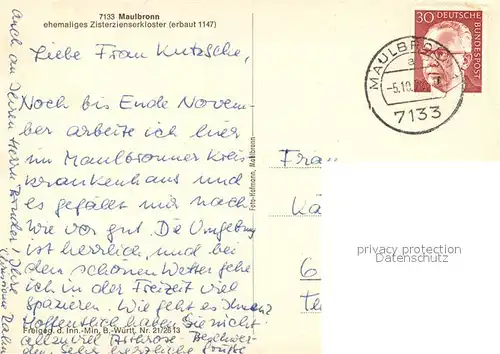 7133 Maulbronn
ehemaliges Zisterzienserkloster (erbaut 1147)
Liebe Frau Kutzsche,
Noch bis Ende Novem-
ber arbeite ich hier
im Maulbronner Kreis
krankenhaus und
es gefällt mir nach
wie vor gut. Die Umgebung
ist herrlich, und bei
dem schönen Wetter gehe
ich in der Freizeit viel
spazieren. Wie geht es Ihnen?
Hoffentlich haben Sie nicht
allzuviel Arthrose-Beschwer-
den. Sehr herzliche Grüße
auch an Ihren Herrn Bruder! Ihre
Christiane
Freigeg. d. Inn.-Min. B.-Württ. Nr. 21/2613
Foto-Hofmann, Maulbronn
30 DEUTSCHE
BUNDESPOST
MAULBRONN 1
a
-5.10.
7133
Frau
Kä
6
privacy protection
Datenschutz
www.ansichtskarten-center.de